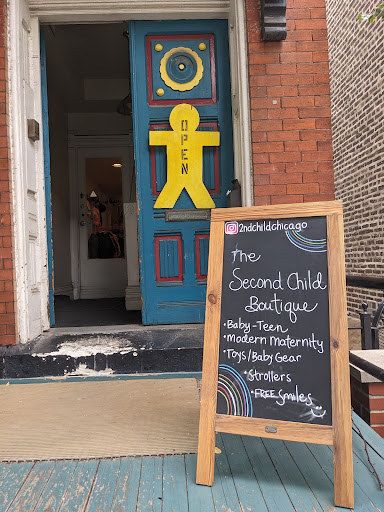 OPEN
2ndchildchicago
The
Second Child
Boutique
•Baby-Teen
•Modern Maternity
•Toys/Baby Gear
•Strollers
•FREE Smiles